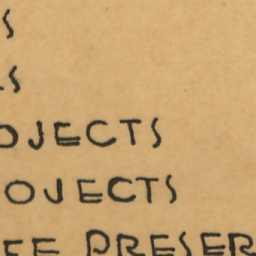 S
S
OJECTS
OJECTS
EE PRESER